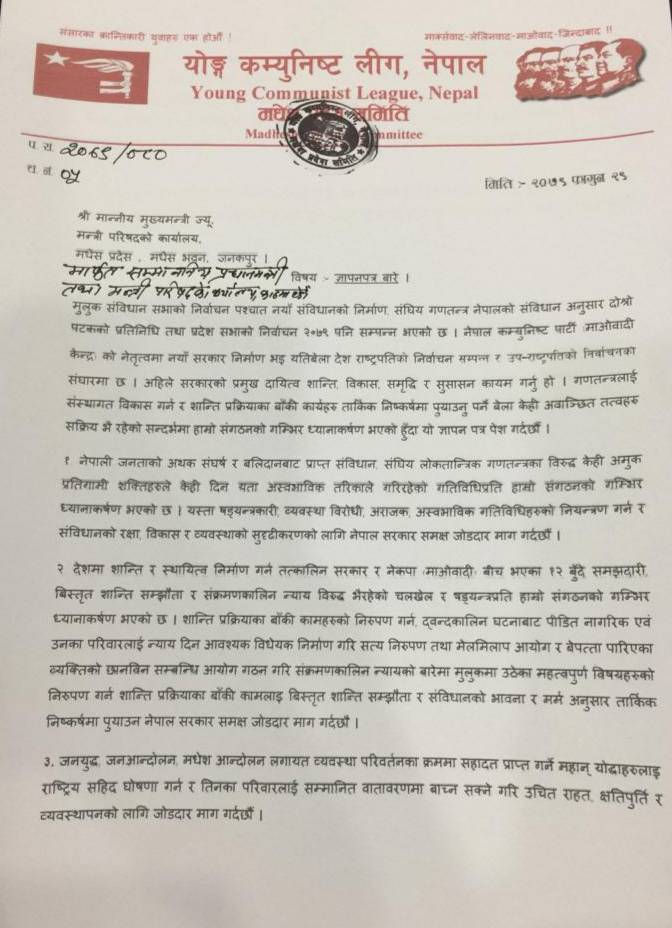 संसारका क्रान्तिकारी युवाहरु एक होऔं !
मार्क्सवाद-लेनिनवाद-माओवाद-जिन्दाबाद !!
योङ्ग कम्युनिष्ट लीग, नेपाल
Young Communist League, Nepal
मधेश समिति
Madhe mmittee
प. सं. २०७९/०८०
च. नं. ०५
मिति :- २०७९ फागुन २९
श्री मान्नीय मुख्यमन्त्री ज्यू,
मन्त्री परिषदको कार्यालय,
मधेस प्रदेस , मधेस भवन, जनकपुर ।
मार्फत सम्माननिय प्रधानमन्त्री
विषय :- ज्ञापनपत्र बारे ।
तथा मन्त्री परिषदको कार्यालय,
मुलुक संविधान सभाको निर्वाचन पश्चात नयाँ संविधानको निर्माण, संघिय गणतन्त्र नेपालको संविधान अनुसार दोश्रो
पटकको प्रतिनिधि तथा प्रदेश सभाको निर्वाचन २०७९ पनि सम्पन्न भएको छ । नेपाल कम्युनिष्ट पार्टी (माओवादी
केन्द्र) को नेतृत्वमा नयाँ सरकार निर्माण भइ यतिबेला देश राष्ट्रपतिको निर्वाचन सम्पन्न र उप-राष्ट्रपतिको निर्वाचनको
संघारमा छ । अहिले सरकारको प्रमुख दायित्व शान्ति, विकास, समृद्धि र सुसासन कायम गर्नु हो । गणतन्त्रलाई
संस्थागत विकास गर्न र शान्ति प्रक्रियाका बाँकी कार्यहरु तार्किक निष्कर्षमा पुयाउनु पर्ने बेला केही अवाञ्छित तत्वहरु
सक्रिय भै रहेको सन्दर्भमा हाम्रो संगठनको गम्भिर ध्यानाकर्षण भएको हुँदा यो ज्ञापन पत्र पेश गर्दछौं ।
१ नेपाली जनताको अथक संघर्ष र बलिदानबाट प्राप्त संविधान, संघिय लोकतान्त्रिक गणतन्त्रका विरुद्ध केही अमुक
प्रतिगामी शक्तिहरुले केही दिन यता अस्वभाविक तरिकाले गरिरहेको गतिविधिप्रति हाम्रो संगठनको गम्भिर
ध्यानाकर्षण भएको छ । यस्ता षड्यन्त्रकारी, व्यवस्था विरोधी, अराजक, अस्वभाविक गतिविधिहरुको नियन्त्रण गर्न र
संविधानको रक्षा, विकास र व्यवस्थाको सुदृढीकरणको लागि नेपाल सरकार समक्ष जोडदार माग गर्दछौं ।
२ देशमा शान्ति र स्थायित्व निर्माण गर्न तत्कालिन सरकार र नेकपा (माओवादी) बीच भएका १२ बुँदे समझदारी,
बिस्तृत शान्ति सम्झौता र संक्रमणकालिन न्याय विरुद्ध भैरहेको चलखेल र षड्यन्त्रप्रति हाम्रो संगठनको गम्भिर
ध्यानाकर्षण भएको छ । शान्ति प्रक्रियाका बाँकी कामहरुको निरुपण गर्न, द्वन्दकालिन घटनाबाट पीडित नागरिक एवं
उनका परिवारलाई न्याय दिन आवश्यक विधेयक निर्माण गरि सत्य निरुपण तथा मेलमिलाप आयोग र बेपत्ता पारिएका
व्यक्तिको छानविन सम्बन्धि आयोग गठन गरि संक्रमणकालिन न्यायको बारेमा मुलुकमा उठेका महत्वपुर्ण विषयहरुको
निरुपण गर्न शान्ति प्रक्रियाका बाँकी कामलाइ बिस्तृत शान्ति सम्झौता र संविधानको भावना र मर्म अनुसार तार्किक
निष्कर्षमा पुयाउन नेपाल सरकार समक्ष जोडदार माग गर्दछौं ।
३. जनयुद्ध, जनआन्दोलन, मधेश आन्दोलन लगायत व्यवस्था परिवर्तनका क्रममा सहादत प्राप्त गर्ने महान् योद्धाहरुलाइ
राष्ट्रिय सहिद घोषणा गर्न र तिनका परिवारलाई सम्मानित वातावरणमा बाच्न सक्ने गरि उचित राहत, क्षतिपुर्ति र
व्यवस्थापनको लागि जोडदार माग गर्दछौं ।